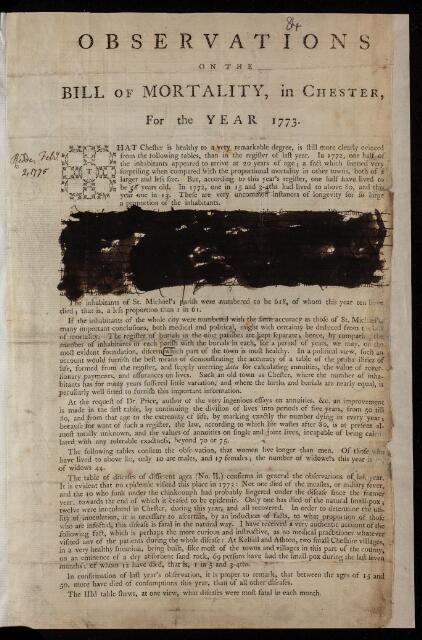 84
OBSERVATIONS
ON THE
BILL OF MORTALITY, in CHESTER,
For the YEAR 1773.
Feb.y
2, 1775
THAT Chester is healthy to a very remarkable degree, is still more clearly evinced
from the following tables, than in the register of last year. In 1772, one half of
the inhabitants appeared to arrive at 20 years of age; a fact which seemed very
surprising when compared with the proportional mortality in other towns, both of a
larger and less size. But, according to this year's register, one half have lived to
be years old. In 1772, one in 15 and 3-4ths had lived to above 80, and this
year one in 13. These are very uncommon instances of longevity for so large
a proportion of the inhabitants.
The inhabitants of St. Michael's parish were numbered to be 618, of whom this year ten have
died; that is, a less proportion than 1 in 61.
If the inhabitants of the whole city were numbered with the same accuracy as those of St. Michael's,
many important conclusions, both medical and political, might with certainty be deduced from the bill
of mortality. The register of burials in the nine parishes are kept separate; hence, by comparing the
number of inhabitants in each parish with the burials in each, for a period of years, we may, on the
most evident foundation, discern which part of the town is most healthy. In a political view, such an
account would furnish the best means of demonstrating the accuracy of a table of the probabilities of
life, formed from the register, and supply unerring data for calculating annuities, the value of rever-
sionary payments, and assurances on lives. Such an old town as Chester, where the number of inha-
bitants has for many years suffered little variation, and where the births and burials are nearly equal, is
peculiarly well fitted to furnish this important information.
At the request of Dr. Price, author of the very ingenious essays on annuities, &c. an improvement
is made in the first table, by continuing the division of lives into periods of five years, from 50 till
80, and from that age to the extremity of life, by marking exactly the number dying in every year;
because for want of such a register, the law, according to which life wastes after 80, is at present al-
most totally unknown, and the values of annuities on single and joint lives, incapable of being calcu-
lated with any tolerable exactness, beyond 70 or 75.
The following tables confirm the observation, that women live longer than men. Of those who
have lived to above 80, only 10 are males, and 17 females; the number of widowers this year is
of widows 44.
The table of diseases of different ages (No. II.) confirms in general the observations of last year.
It is evident that no epidemic visited this place in 1773: Not one died of the measles, or miliary fever,
and the 10 who sunk under the chinkcough had probably lingered under the disease since the former
year, towards the end of which it ceased to be epidemic. Only one has died of the natural small-pox;
twelve were inoculated in Chester, during this year, and all recovered. In order to determine the uti-
lity of inoculation, it is necessary to ascertain, by an induction of facts, to what proportion of those
who are infected, this disease is fatal in the natural way. I have received a very authentic account of the
following fact, which is perhaps the more curious and instructive, as no medical practitioner whatever
visited any of the patients during the whole disease: At Kelsall and Ashton, two small Cheshire villages,
in a very healthy situation, being built, like most of the towns and villages in this part of the county,
on an eminence of a dry absorbent sand rock, 69 persons have had the small-pox during the last seven
months; of whom 12 have died, that is, 1 in 5 and 3-4ths.
In confirmation of last year's observation, it is proper to remark, that between the ages of 15 and
50, more have died of consumptions this year, than of all other diseases.
The IIId table shews, at one view, what diseases were most fatal in each month.